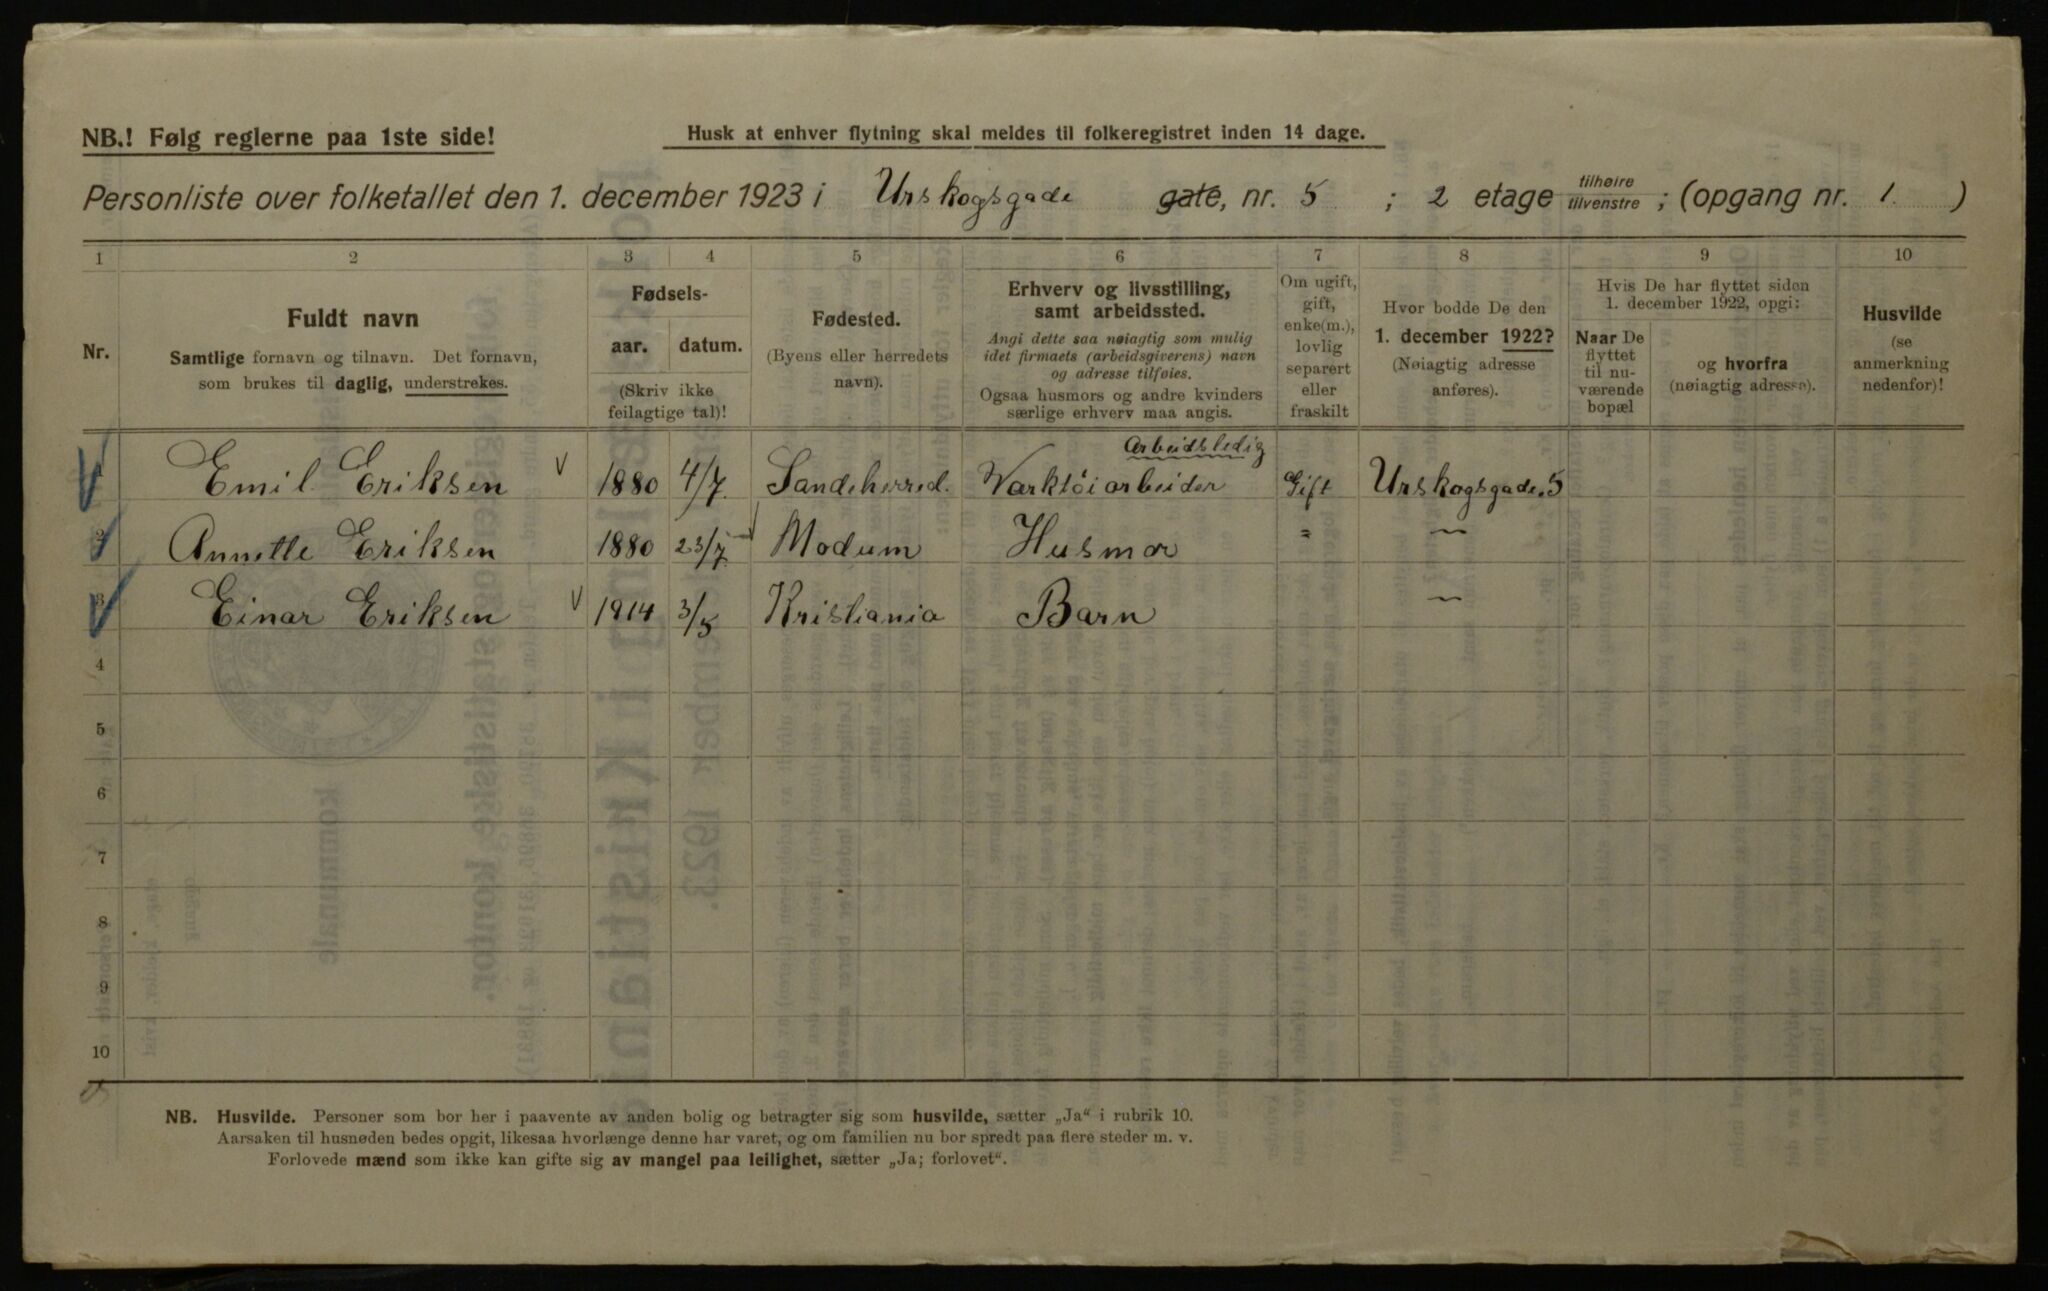 NB.! Følg reglerne paa 1ste side!
Husk at enhver flytning skal meldes til folkeregistret inden 14 dage.
Personliste over folketallet den 1. december 1923 i Urskogsgade gate, nr. 5 ; 2 etage tilhøire tilvenstre ; (opgang nr. 1 )
1 2 3 4 5 6 7 8 9 10
Nr.
Fuldt navn
Samtlige fornavn og tilnavn. Det fornavn,
som brukes til daglig, understrekes.
Fødsels-
aar. datum.
(Skriv ikke
feilagtige tal)!
Fødested.
(Byens eller herredets
navn).
Erhverv og livsstilling,
samt arbeidssted.
Angi dette saa nøiagtig som mulig
idet firmaets (arbeidsgiverens) navn
og adresse tilføies.
Ogsaa husmors og andre kvinders
særlige erhverv maa angis.
Om ugift,
gift,
enke(m.),
lovlig
separert
eller
fraskilt
Hvor bodde De den
1. december 1922?
(Nøiagtig adresse
anføres).
Hvis De har flyttet siden
1. december 1922, opgi:
Naar De
flyttet
til nu-
værende
bopæl
og hvorfra
(nøiagtig adresse).
Husvilde
(se
anmerkning
nedenfor)!
Arbeidsledig
1 Emil Eriksen 1880 4/7 Sandeherred. Varktöiarbeider Gift Urskogsgade. 5
2 Annette Eriksen 1880 23/7 Modum Husmor " —
3 Einar Eriksen 1914 3/5 Kristiania Barn —
4
5
6
7
8
9
10
NB. Husvilde. Personer som bor her i paavente av anden bolig og betragter sig som husvilde, sætter „Ja" i rubrik 10.
Aarsaken til husnøden bedes opgit, likesaa hvorlænge denne har varet, og om familien nu bor spredt paa flere steder m. v.
Forlovede mænd som ikke kan gifte sig av mangel paa leilighet, sætter „Ja; forlovet".